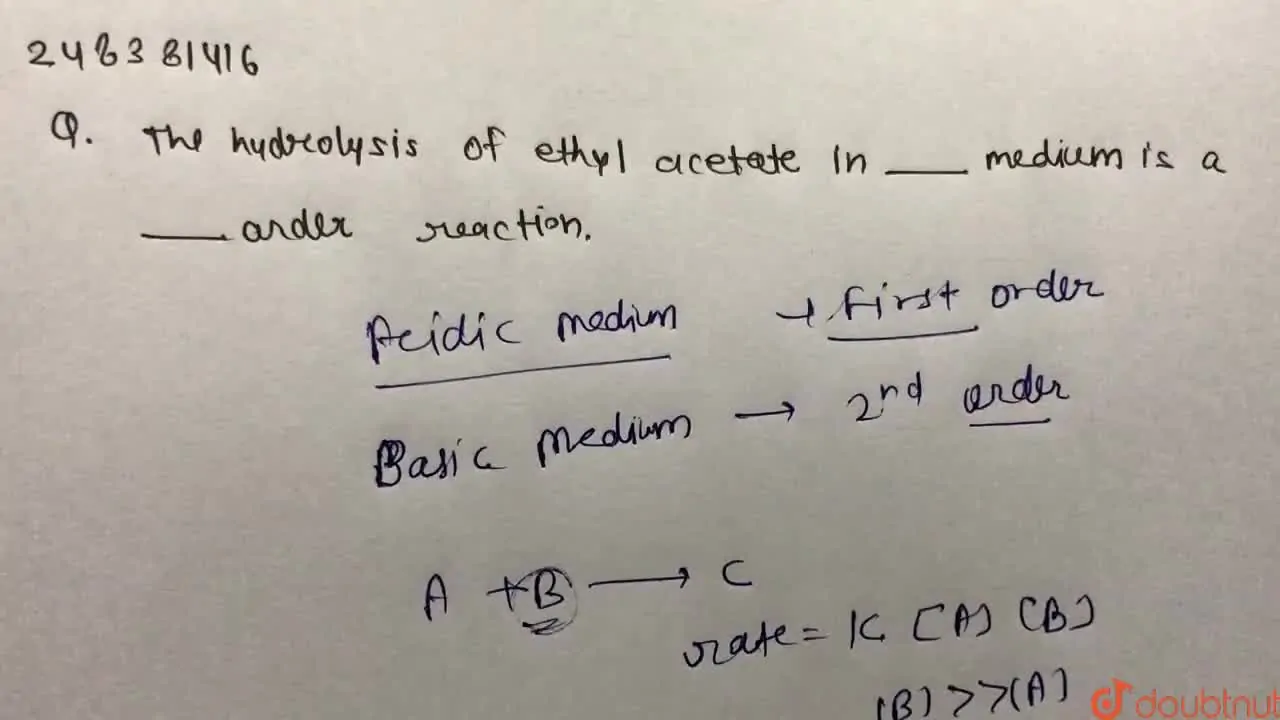 248381416
Q. The hydrolysis of ethyl acetate in ___ medium is a
___ order reaction.
Acidic medium → First order
Basic medium → 2nd order
A + B → C
rate = K [A] [B]
[B] >> [A]
doubtnut